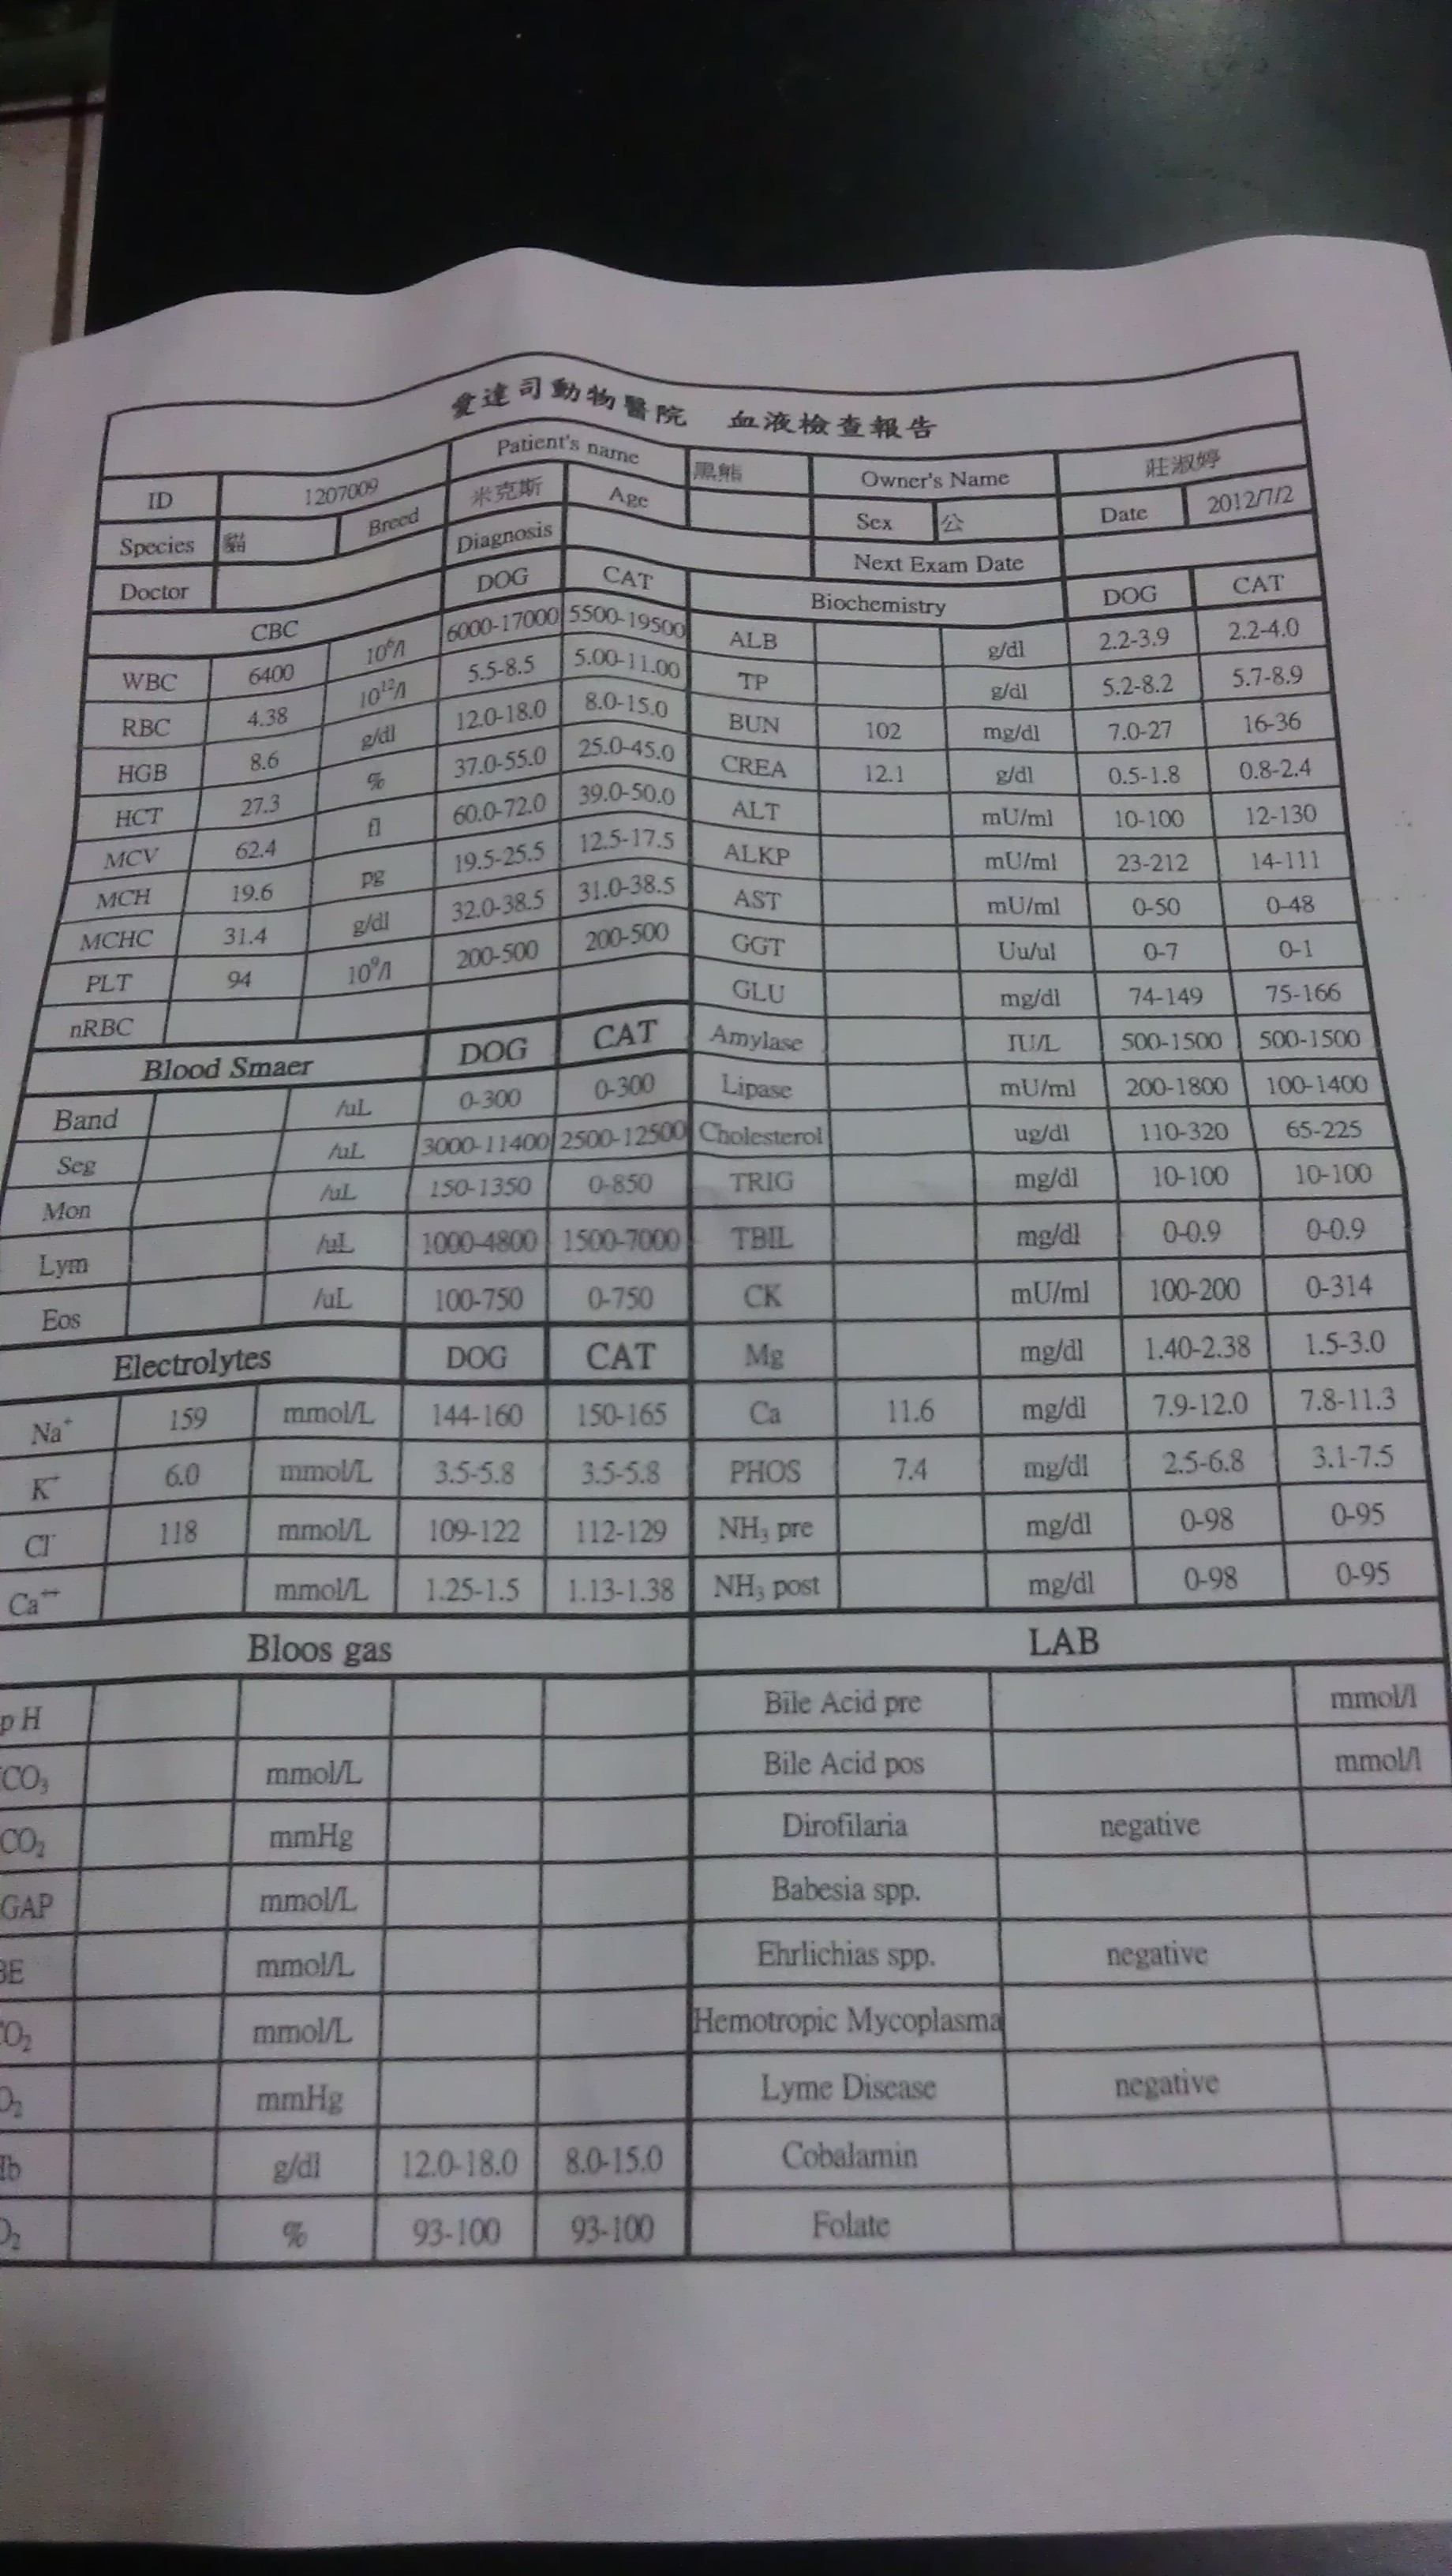 愛達司動物醫院 血液檢查報告
ID 1207009 Patient's name 黑熊 Owner's Name 莊淑婷
Species 貓 Breed 米克斯 Age Sex 公 Date 2012/7/2
Doctor Diagnosis Next Exam Date
CBC DOG CAT
WBC 6400 10⁶/l 6000-17000 5500-19500
RBC 4.38 10¹²/l 5.5-8.5 5.00-11.00
HGB 8.6 g/dl 12.0-18.0 8.0-15.0
HCT 27.3 % 37.0-55.0 25.0-45.0
MCV 62.4 fl 60.0-72.0 39.0-50.0
MCH 19.6 pg 19.5-25.5 12.5-17.5
MCHC 31.4 g/dl 32.0-38.5 31.0-38.5
PLT 94 10⁹/l 200-500 200-500
nRBC
Blood Smaer DOG CAT
Band /uL 0-300 0-300
Seg /uL 3000-11400 2500-12500
Mon /uL 150-1350 0-850
Lym /uL 1000-4800 1500-7000
Eos /uL 100-750 0-750
Electrolytes DOG CAT
Na⁺ 159 mmol/L 144-160 150-165
K⁺ 6.0 mmol/L 3.5-5.8 3.5-5.8
Cl⁻ 118 mmol/L 109-122 112-129
Ca⁺⁺ mmol/L 1.25-1.5 1.13-1.38
Biochemistry DOG CAT
ALB g/dl 2.2-3.9 2.2-4.0
TP g/dl 5.2-8.2 5.7-8.9
BUN 102 mg/dl 7.0-27 16-36
CREA 12.1 g/dl 0.5-1.8 0.8-2.4
ALT mU/ml 10-100 12-130
ALKP mU/ml 23-212 14-111
AST mU/ml 0-50 0-48
GGT Uu/ul 0-7 0-1
GLU mg/dl 74-149 75-166
Amylase IU/L 500-1500 500-1500
Lipase mU/ml 200-1800 100-1400
Cholesterol ug/dl 110-320 65-225
TRIG mg/dl 10-100 10-100
TBIL mg/dl 0-0.9 0-0.9
CK mU/ml 100-200 0-314
Mg mg/dl 1.40-2.38 1.5-3.0
Ca 11.6 mg/dl 7.9-12.0 7.8-11.3
PHOS 7.4 mg/dl 2.5-6.8 3.1-7.5
NH₃ pre mg/dl 0-98 0-95
NH₃ post mg/dl 0-98 0-95
Bloos gas
pH
CO₃ mmol/L
CO₂ mmHg
GAP mmol/L
BE mmol/L
O₂ mmol/L
O₂ mmHg
g/dl 12.0-18.0 8.0-15.0
O₂ % 93-100 93-100
LAB
Bile Acid pre mmol/l
Bile Acid pos mmol/l
Dirofilaria negative
Babesia spp.
Ehrlichias spp. negative
Hemotropic Mycoplasma
Lyme Disease negative
Cobalamin
Folate